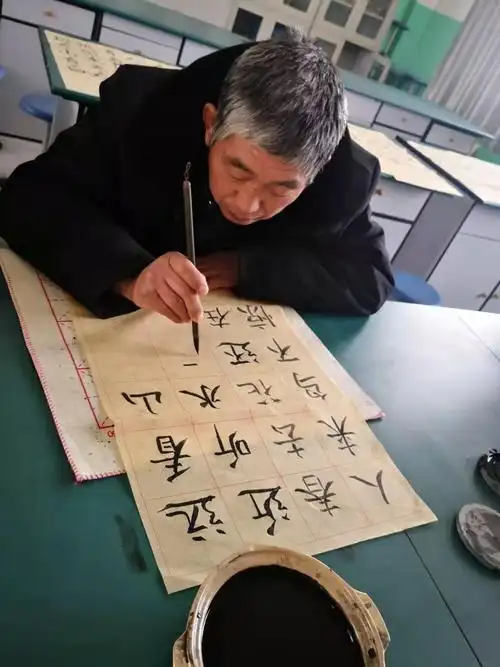 远看山
近听水
春去花还在
人来鸟不惊